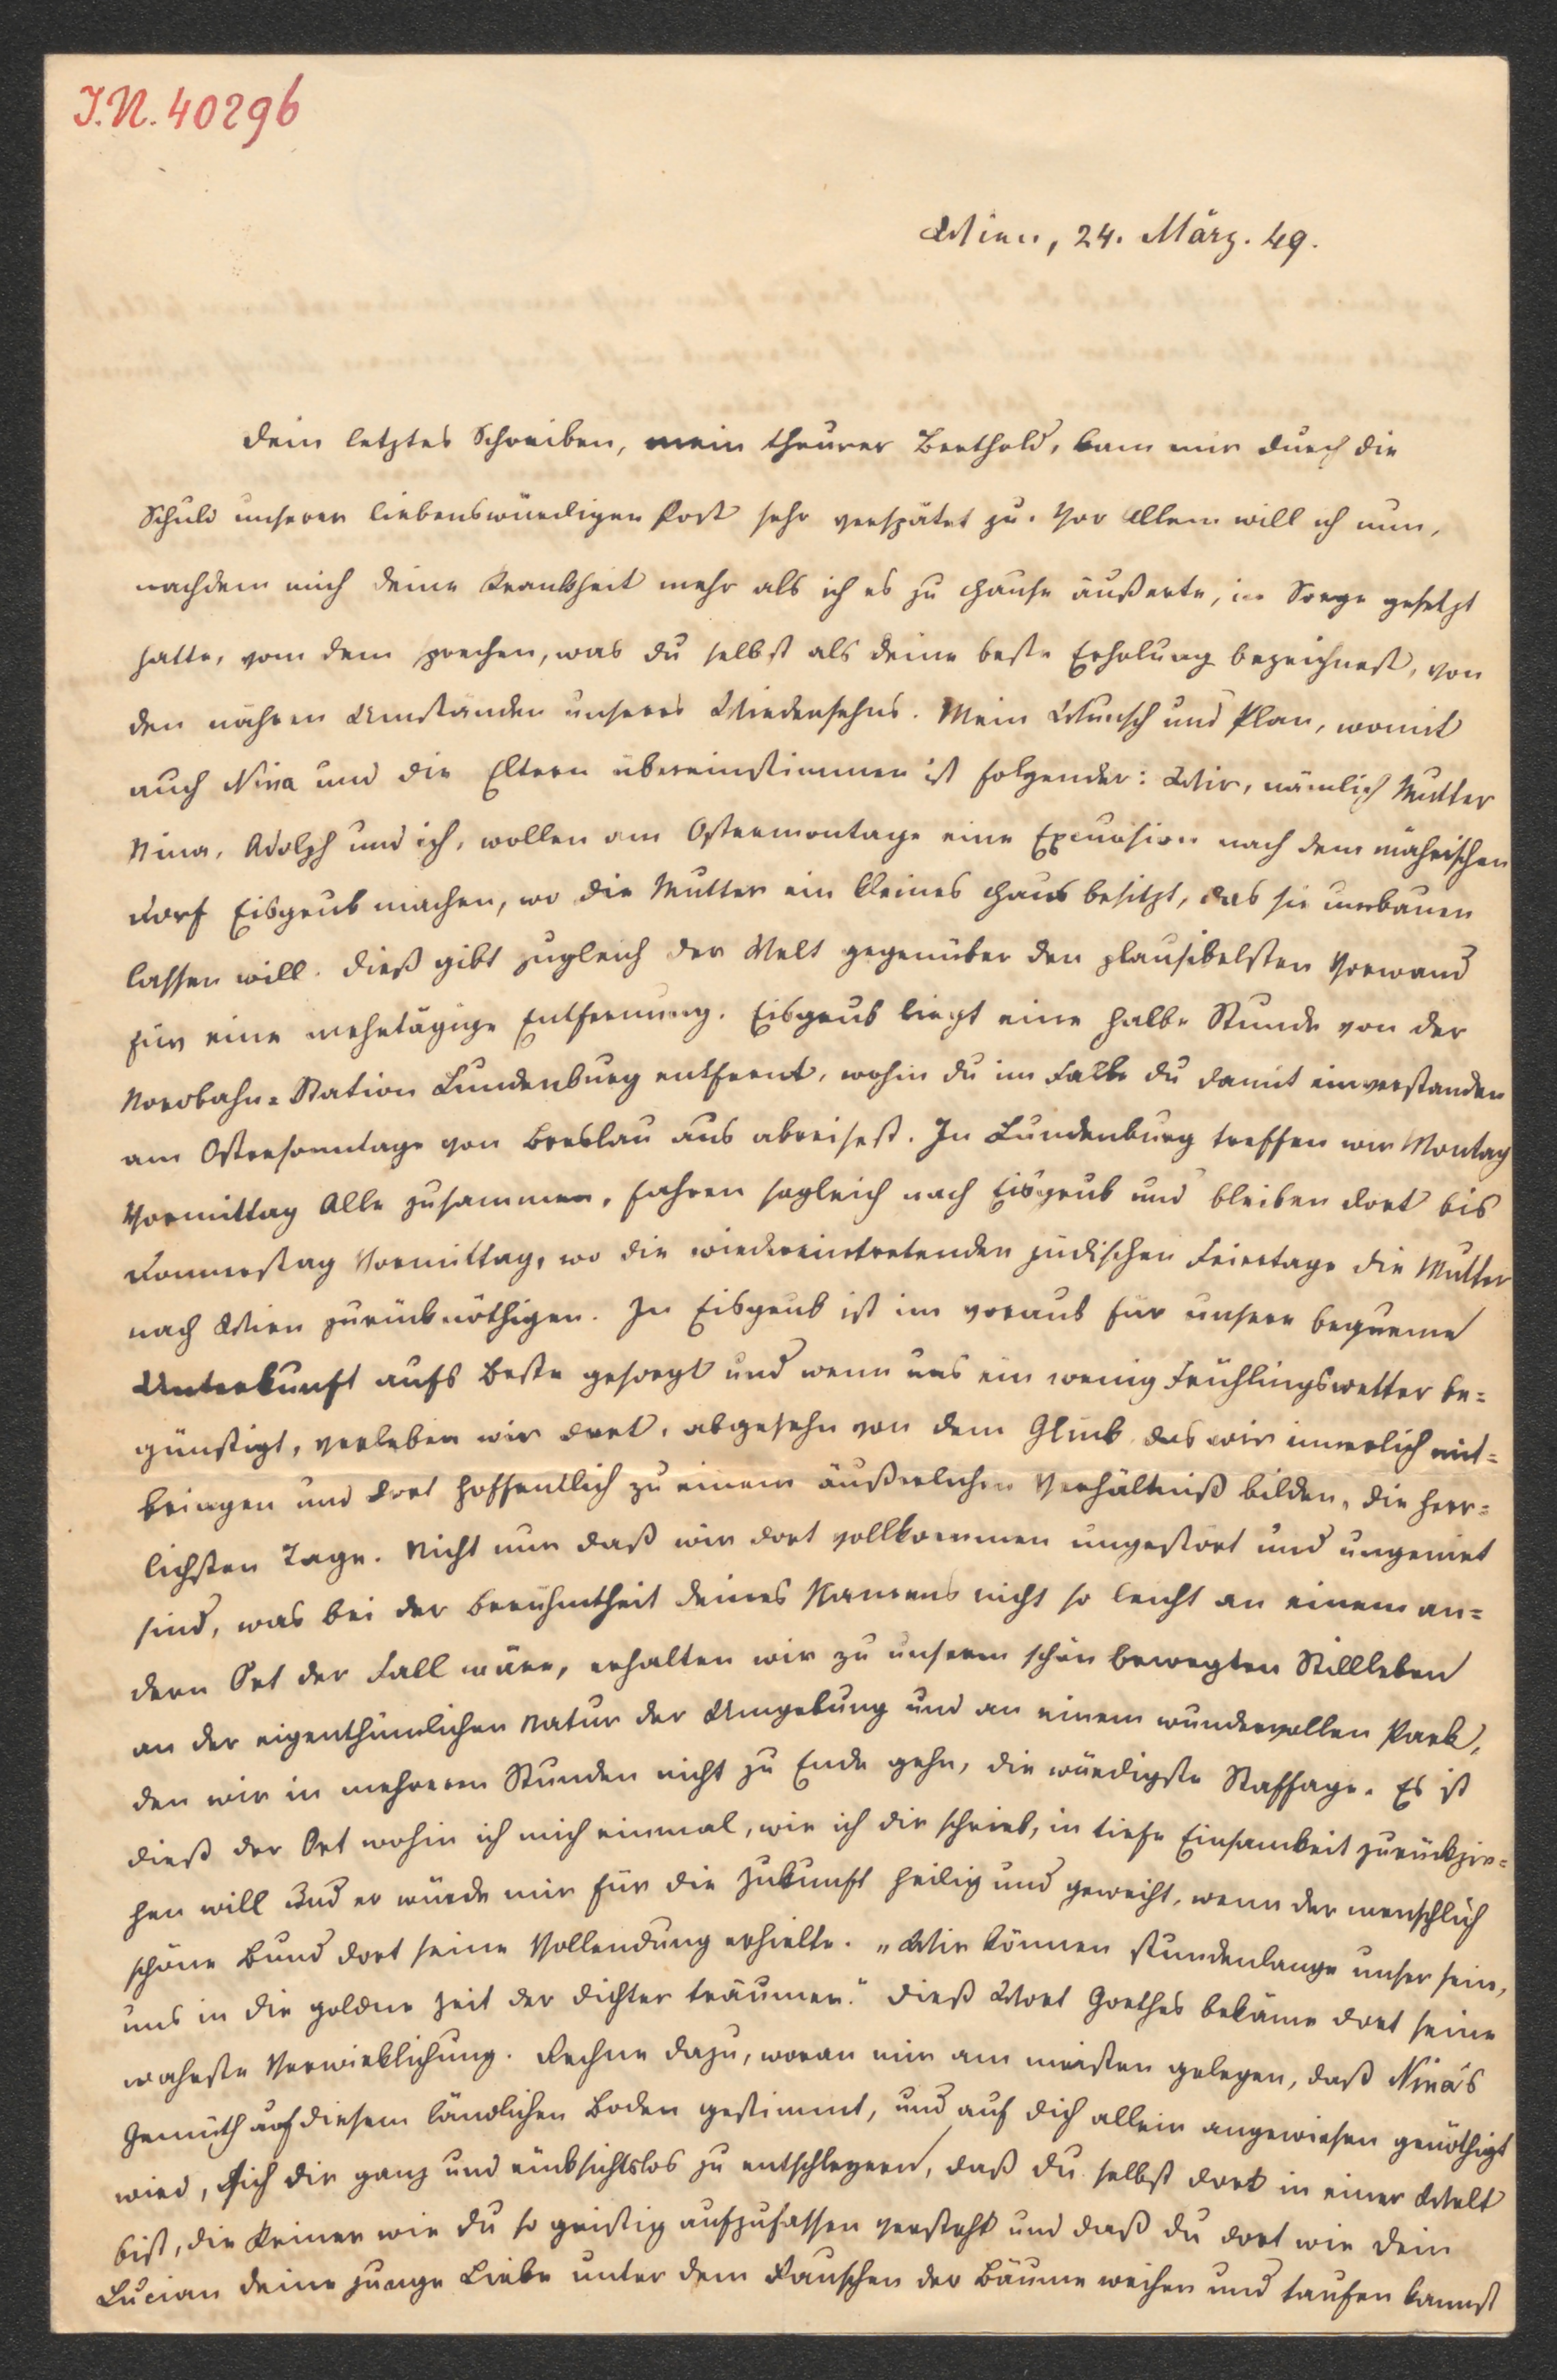 I.N. 40296
Wien, 24. März. 49.
Dein letztes Schreiben, mein theurer Berthold, kam mir durch die
Schuld unserer liebenswürdigen Post sehr verspätet zu. Vor Allem will ich nun,
nachdem mich deine Krankheit mehr als ich es zu Hause äußerte, in Sorge gesetzt
hatte, von dem sprechen, was du selbst als deine beste Erholung bezeichnest, von
den nähren Umständen unseres Wiedersehns. Mein Wunsch und Plan, womit
auch Nina und die Eltern übereinstimmen ist folgender: Wir, nämlich Mutter
Nina, Adolph und ich, wollen am Ostermontage eine Excursion nach dem mährischen
Dorf Eisgrub machen, wo die Mutter ein kleines Haus besitzt, das sie umbauen
lassen will. Dieß gibt zugleich der Welt gegenüber den plausibelsten Vorwand
für eine mehrtägige Entfernung. Eisgrub liegt eine halbe Stunde von der
Nordbahn-Station Lundenburg entfernt, wohin du im Falle du damit einverstanden
am Ostersonntage von Breslau aus abreisest. In Lundenburg treffen wir Montag
Vormittag Alle zusammen, fahren sogleich nach Eisgrub und bleiben dort bis
Donnerstag Vormittag, wo die wiedereintretenden jüdischen Feiertage die Mutter
nach Wien zurücknöthigen. In Eisgrub ist im voraus für unsere bequeme
Unterkunft aufs Beste gesorgt und wenn uns ein wenig Frühlingswetter be=
günstigt, verleben wir dort, abgesehn von dem Glück das wir innerlich mit=
bringen und dort hoffentlich zu einem äußerlichen Verhältniß bilden, die herr=
lichsten Tage. Nicht nur daß wir dort vollkommen ungestört und ungenirt
sind, was bei der Berühmtheit deines Namens nicht so leicht an einem an=
dern Ort der Fall wäre, erhalten wir zu unserm schön bewegten Stillleben
an der eigenthümlichen Natur der Umgebung und an einem wundervollen Park,
den wir in mehreren Stunden nicht zu Ende gehn, die würdigste Staffage. Es ist
dieß der Ort wohin ich mich einmal, wie ich dir schrieb, in tiefe Einsamkeit zurückzie=
hen will und er würde mir für die Zukunft heilig und geweiht, wenn der menschlich
schöne Bund dort seine Vollendung erhielte. „Wir können stundenlange unser sein,
uns in die goldne Zeit der Dichter träumen." Dieß Wort Goethes bekäme dort seine
wahrste Verwirklichung. Rechne dazu, woran mir am meisten gelegen, daß Nina's
Gemüth auf diesem ländlichen Boden gestimmt, und auf dich allein angewiesen genöthigt
wird, sich dir ganz und rücksichtslos zu entschleyern, daß du selbst dort in einer Welt
bist, die Keiner wie du so geistig aufzufassen versteht und daß du dort wie dein
Lucian deine junge Liebe unter dem Rauschen der Bäume weihen und taufen kannst